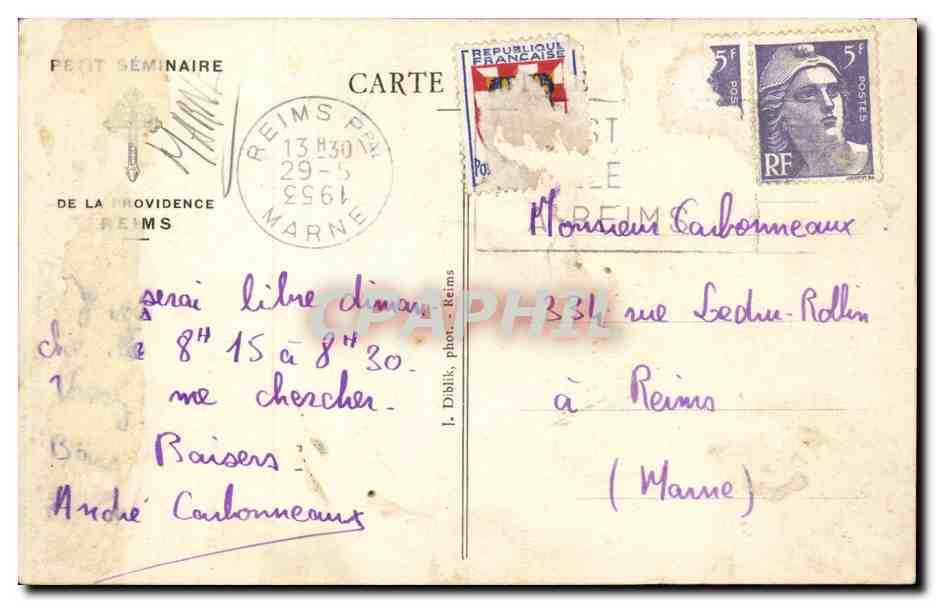 PETIT SÉMINAIRE
DE LA PROVIDENCE
REIMS
MARNE
CARTE
REIMS PPAL
13 H 30
29-5
1953
MARNE
REPUBLIQUE
FRANÇAISE
5F
POSTES
5F
POSTES
RF
A REIMS
serai libre diman-
che 8H 15 à 8H 30.
me chercher.
Baisers
André Carbonneaux
J. Diblik, phot. - Reims
Monsieur Carbonneaux
334 rue Ledru-Rollin
à Reims
(Marne)
CPAPHIL